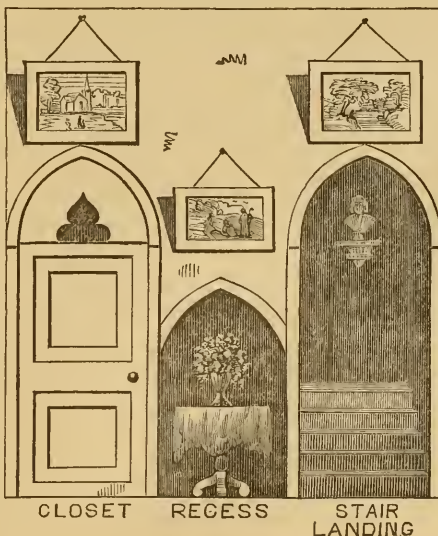 CLOSET RECESS STAIR
LANDING